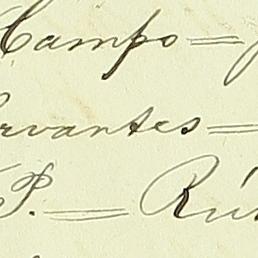 Campo =
rvantes =
P. = Rú